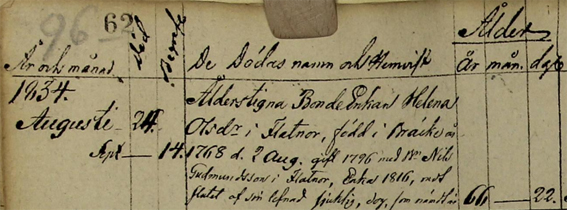 96 62
Död
Begrafn
Ålder
År och månad
De Dödas namn och Hemvist
år mån. dgr
1834.
Ålderstigna Bonde Enkan Helena
Augusti 24.
Olsdr i Flatnor, född i Bräcke år
Sept 14.
1768 d. 2 Aug. gift 1796 med Nils
Gudmundsson i Flatnor, Enka 1816, mest
af sin lefnad sjuklig, dog, som nämndt är
66 — 22.